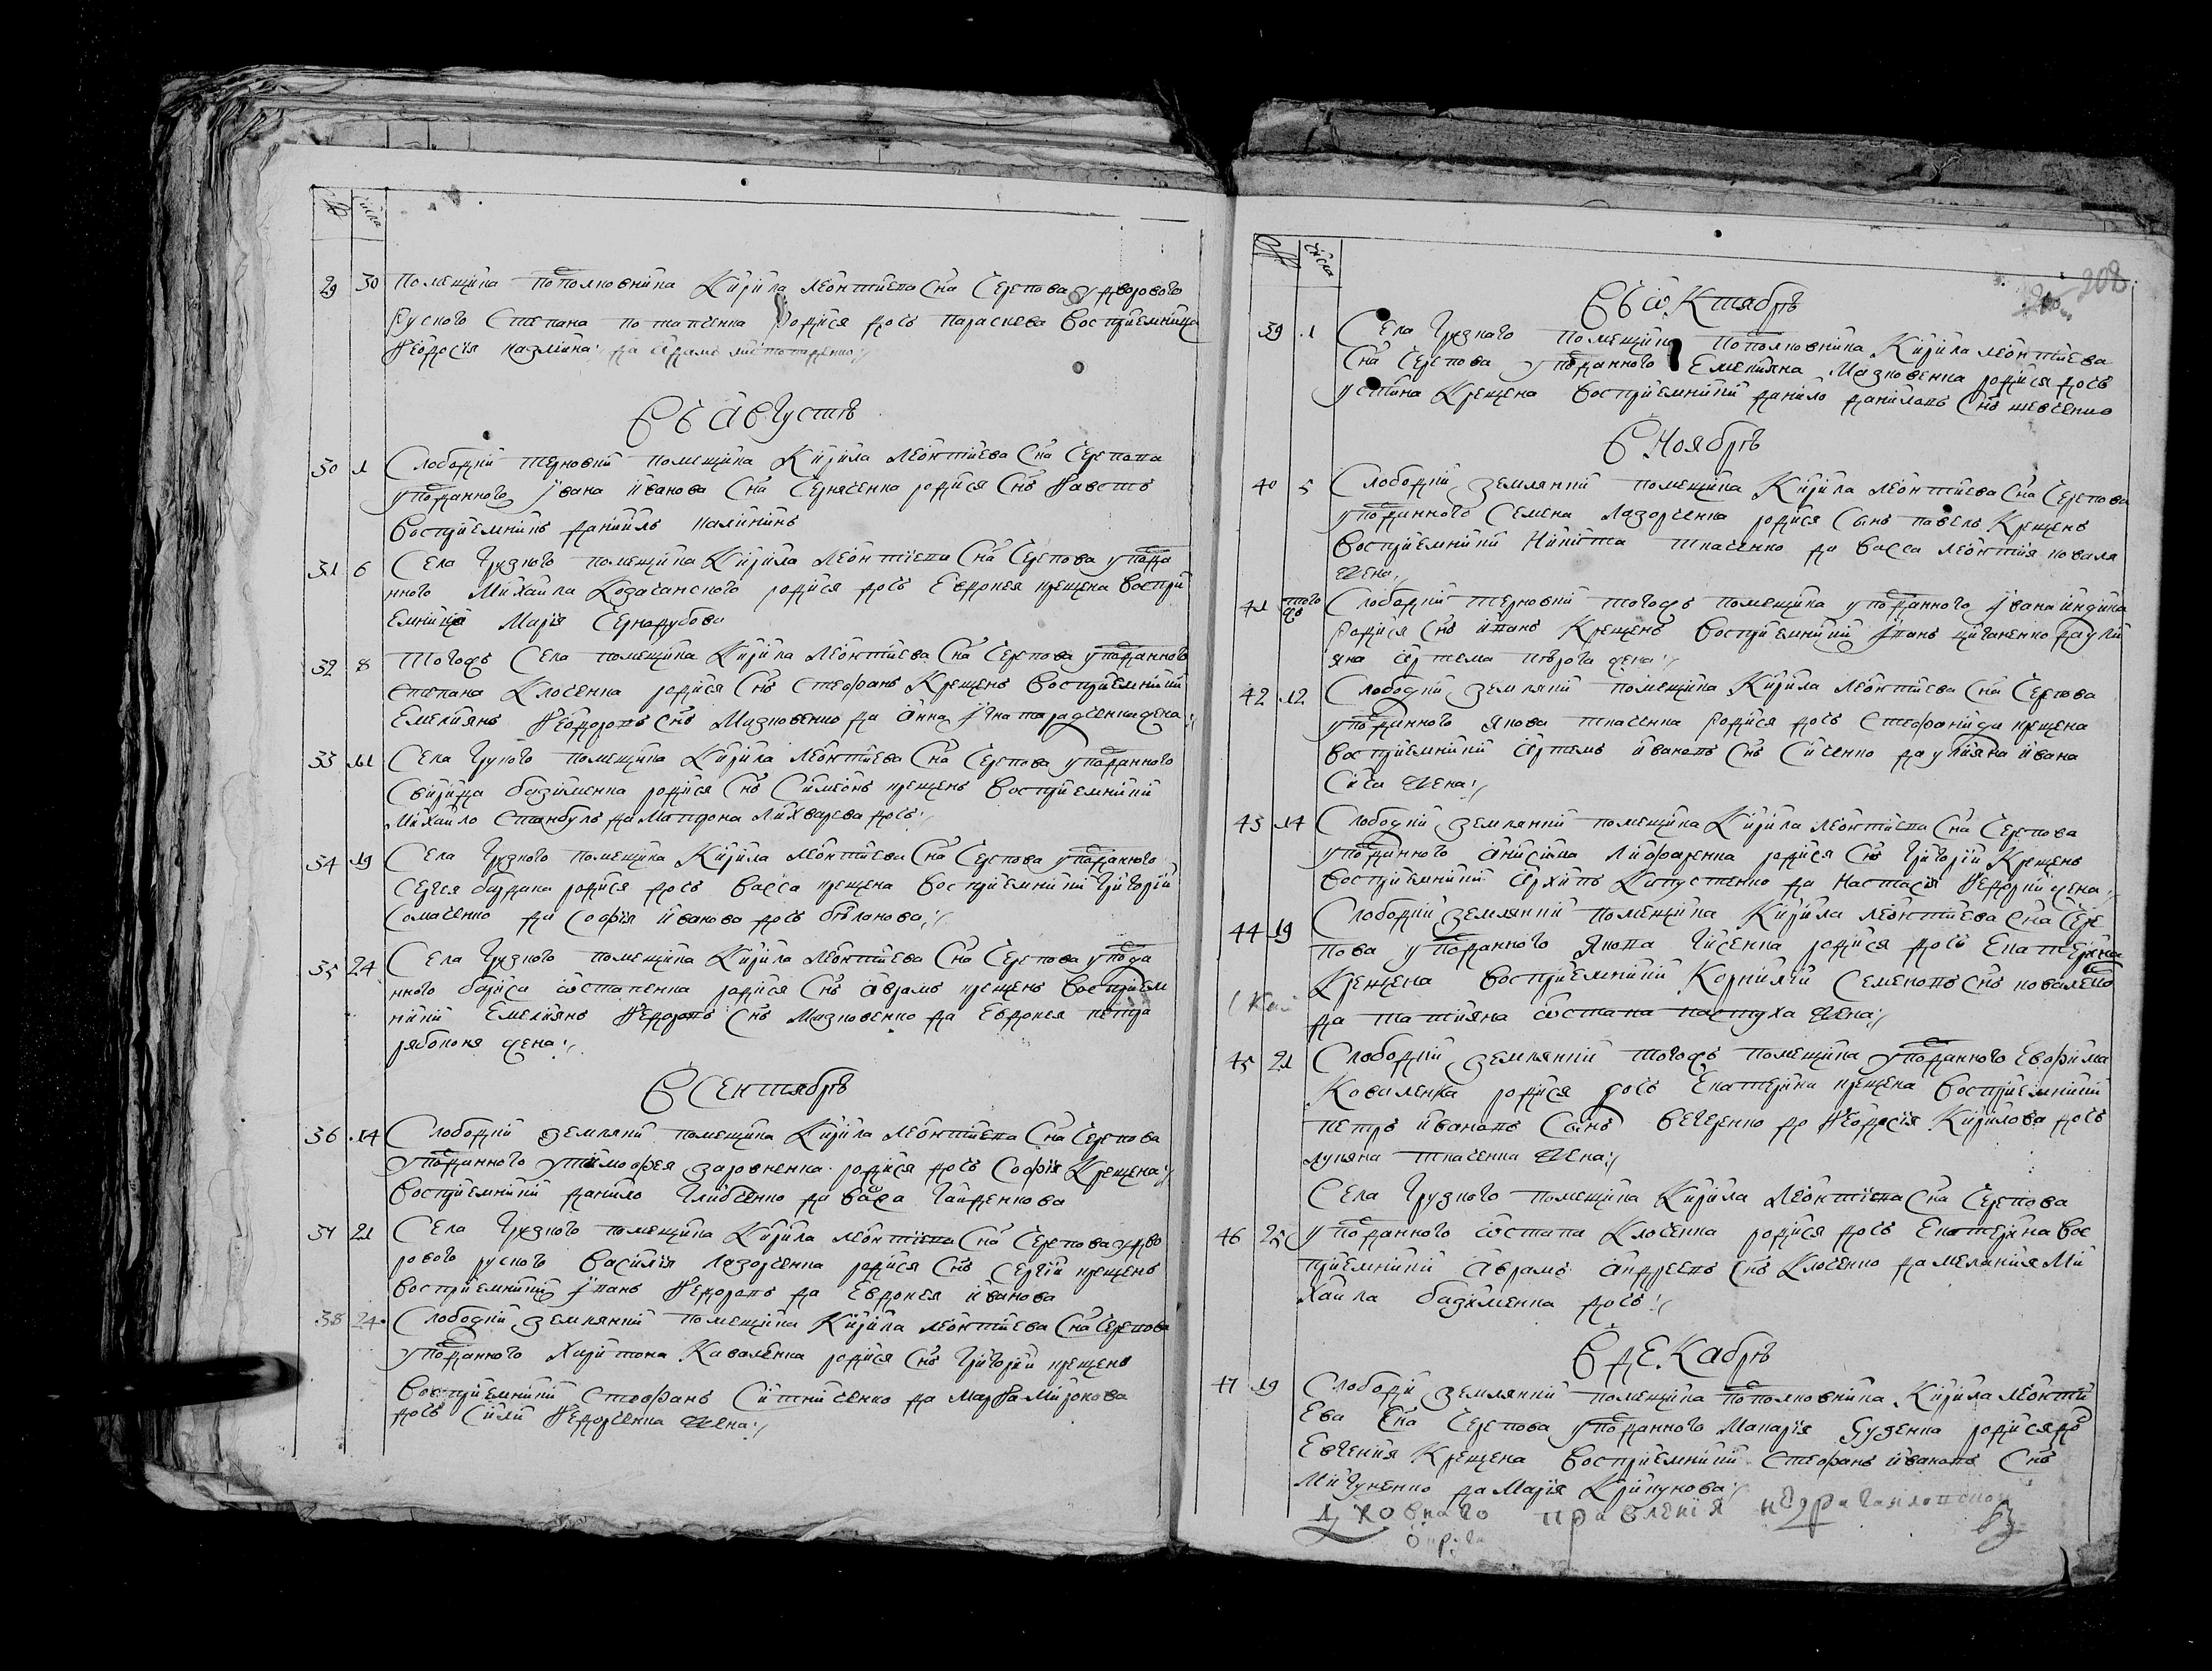 № числа
29 30 помещика потполковника Кирила леонтиева сна Черепова у дворового
руского Степана потапенка родися дочь параскева восприемница
Феодосія да адамъ
Въ Августѣ
30 1 Слободки терновки помещика Кирила леонтиева сна Черепова
уподданного Ивана иванова сна родися снъ Фавстъ
восприемникъ данiилъ калининъ
31 6 Села Грузкого помещика Кирила леонтиева сна Черепова упода
нного Михаила Козачанского родися дочь Евдокея крещена воспри
емница Марiя Чернодубова
32 8 тогожъ Села помещика Кирила леонтиева сна Черепова уподданного
степана Клоченка родися снъ стефанъ Крещенъ восприемники
Емелиянъ Феодоровъ снъ Мазновенко да анна жена
33 11 Села Грузкого помещика Кирила леонтиева сна Черепова уподданного
Свирида базименка родися снъ Симеонъ крещенъ восприемники
Михайло да Матрона Лихварева дочь
34 19 Села Грузкого помещика Кирила леонтиева сна Черепова уподданного
Сергея родися дочь васса крещена восприемники Григорiй
да софiя иванова дочь
35 24 Села Грузкого помещика Кирила леонтиева сна Черепова упода
нного бориса остапенка родися снъ аврамъ крещенъ восприем
ники Емелиянъ Федоровъ снъ Мазновенко да Евдокея петра
рябоконя жена
В Сентябрѣ
36 14 Слободки землянки помещика Кирила леонтиева сна Черепова
уподданного утимофея родися дочь Софiя Крещена
восприемники данило да васа Гайденкова
37 21 Села Грузкого помещика Кирила леонтиева сна Черепова удво
рового руского василiя лазорченка родися снъ сергiй крещенъ
восприемники Иванъ Федоровъ да Евдокея иванова
38 24 Слободки землянки помещика Кирила леонтиева сна Черепова
уподданного Харитона Коваленка родися снъ Григорiй крещенъ
восприемники стефанъ Ситниченко да Марфа Миронова
дочь Силы Федорченка жена
№ числа
208
Въ Октябрѣ
39 1 Села Грузкого помещика потполковника Кирила леонтиева
сна Черепова уподданного Емелияна Мазновенка родися дочь
устина Крещена восприемники данило даниловъ снъ шевченко
В Ноябрѣ
40 5 Слободки землянки помещика Кирила леонтиева сна Черепова
уподданного Семена лазорченка родися сынъ павелъ Крещенъ
восприемники Никита ткаченко да васса леонтия коваля
жена
41 того жъ Слободки терновки тогожъ помещика уподданного Ивана индика
родися снъ иванъ Крещенъ восприемники Иванъ цыганенко да ули
яна артема пирога жена
42 12 Слободки землянки помещика Кирила леонтиева сна Черепова
уподданного якова ткаченка родися дочь стефанида крещена
восприемники артемъ ивановъ снъ Сиченко да улияна ивана
Сича жена
43 14 Слободки землянки помещика Кирила леонтиева сна Черепова
уподданного анисима родися снъ Григорiй Крещенъ
восприемники архипъ Капустенко да настасiя жена
44 19 Слободки землянки помещика Кирила леонтиева сна Чере
пова уподданного якова родися дочь Екатерина
Крещена восприемники Корнилiй Семеновъ снъ коваленко
да татияна остапа пастуха жена
45 21 Слободки землянки тогожъ помещика уподданного Евфима
Коваленка родися дочь Екатерина крещена восприемники
петръ ивановъ сынъ вечеренко да Феодосiя Кирилова дочь
лукяна ткаченка жена
Села Грузкого помещика Кирила леонтиева сна Черепова
46 25 уподданного остапа Клоченка родися дочь Екатерина вос
приемники аврамъ андреевъ снъ Клоченко да меланiя Ми
хаила базименка дочь
В дЕкабрѣ
47 19 Слободки землянки помещика потполковника Кирила леонти
ева сна Черепова уподданного Макарiя родися дочь
Евгения Крещена восприемники стефанъ ивановъ снъ
да Марiя Крикунова
духовнаго правленiя